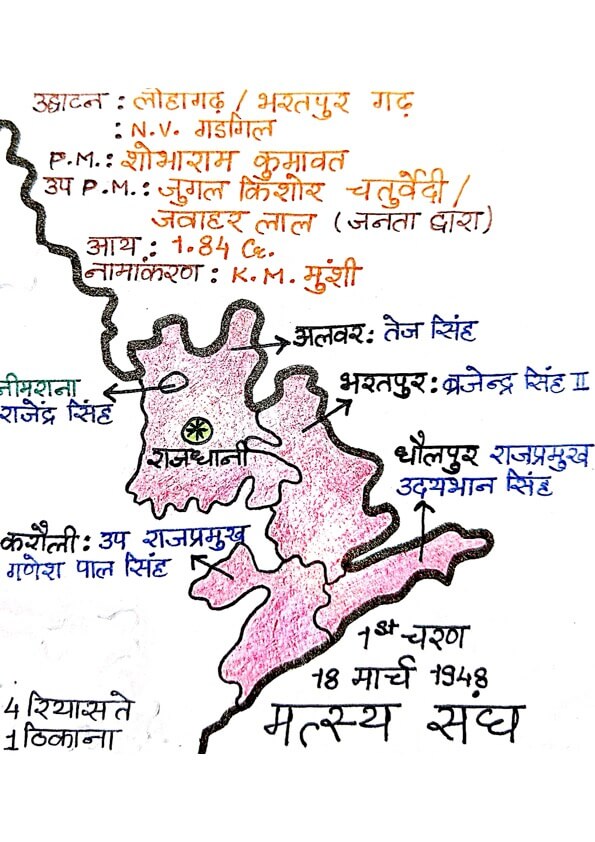 उद्घाटन : लोहागढ़ / भरतपुर गढ़
: N.V. गडगिल
P.M.: शोभाराम कुमावत
उप P.M.: जुगल किशोर चतुर्वेदी /
जवाहर लाल (जनता द्वारा)
आय : 1.84 Cr.
नामांकरण : K.M. मुंशी
अलवर: तेज सिंह
नीमराना
राजेंद्र सिंह
भरतपुर: ब्रजेन्द्र सिंह II
राजधानी
धौलपुर राजप्रमुख
उदयभान सिंह
करौली: उप राजप्रमुख
गणेश पाल सिंह
1st चरण
18 मार्च 1948
मत्स्य संघ
4 रियासते
1 ठिकाना